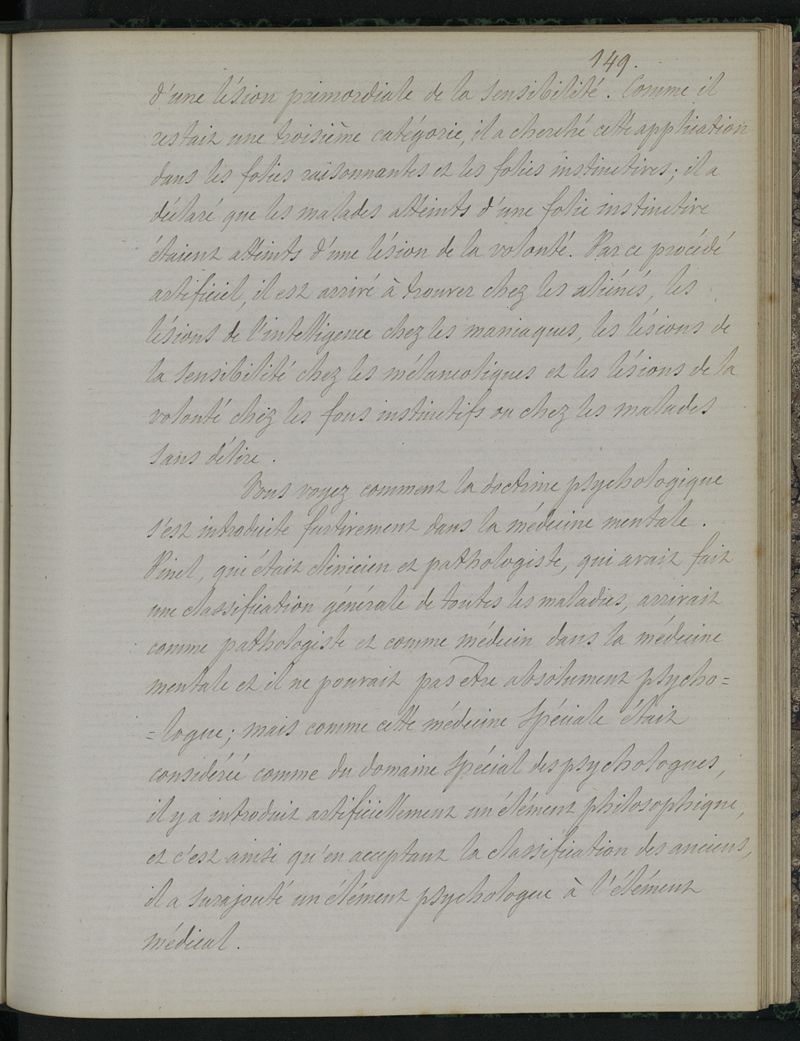 149.
d'une lésion primordiale de la sensibilité. Comme il
restait une troisième catégorie, il a cherché cette application
dans les folies raisonnantes et les folies instinctives; il a
déclaré que les malades atteints d'une folie instinctive
étaient atteints d'une lésion de la volonté. Par ce procédé
artificiel, il est arrivé à trouver chez les aliénés, les
lésions de l'intelligence chez les maniaques, les lésions de
la sensibilité chez les mélancoliques et les lésions de la
volonté chez les fous instinctifs ou chez les malades
sans délire.
Vous voyez comment la doctrine psychologique
s'est introduite furtivement dans la médecine mentale.
Pinel, qui était clinicien et pathologiste, qui avait fait
une classification générale de toutes les maladies, arrivait
comme pathologiste et comme médecin dans la médecine
mentale et il ne pouvait pas être absolument psycho=
=logue; mais comme cette médecine spéciale était
considérée comme du domaine spécial des psychologues,
il y a introduit artificiellement un élément philosophique,
et c'est ainsi qu'en acceptant la classification des anciens,
il a surajouté un élément psychologue à l'élément
médical.